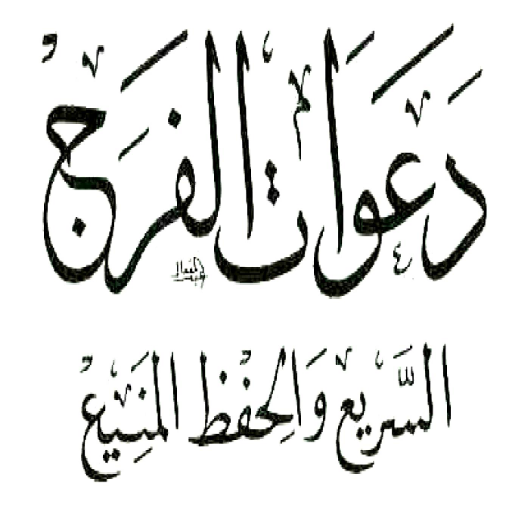 دَعَوَات الفَرَج
السَّرِيع وَالحِفْظ المَنِيع